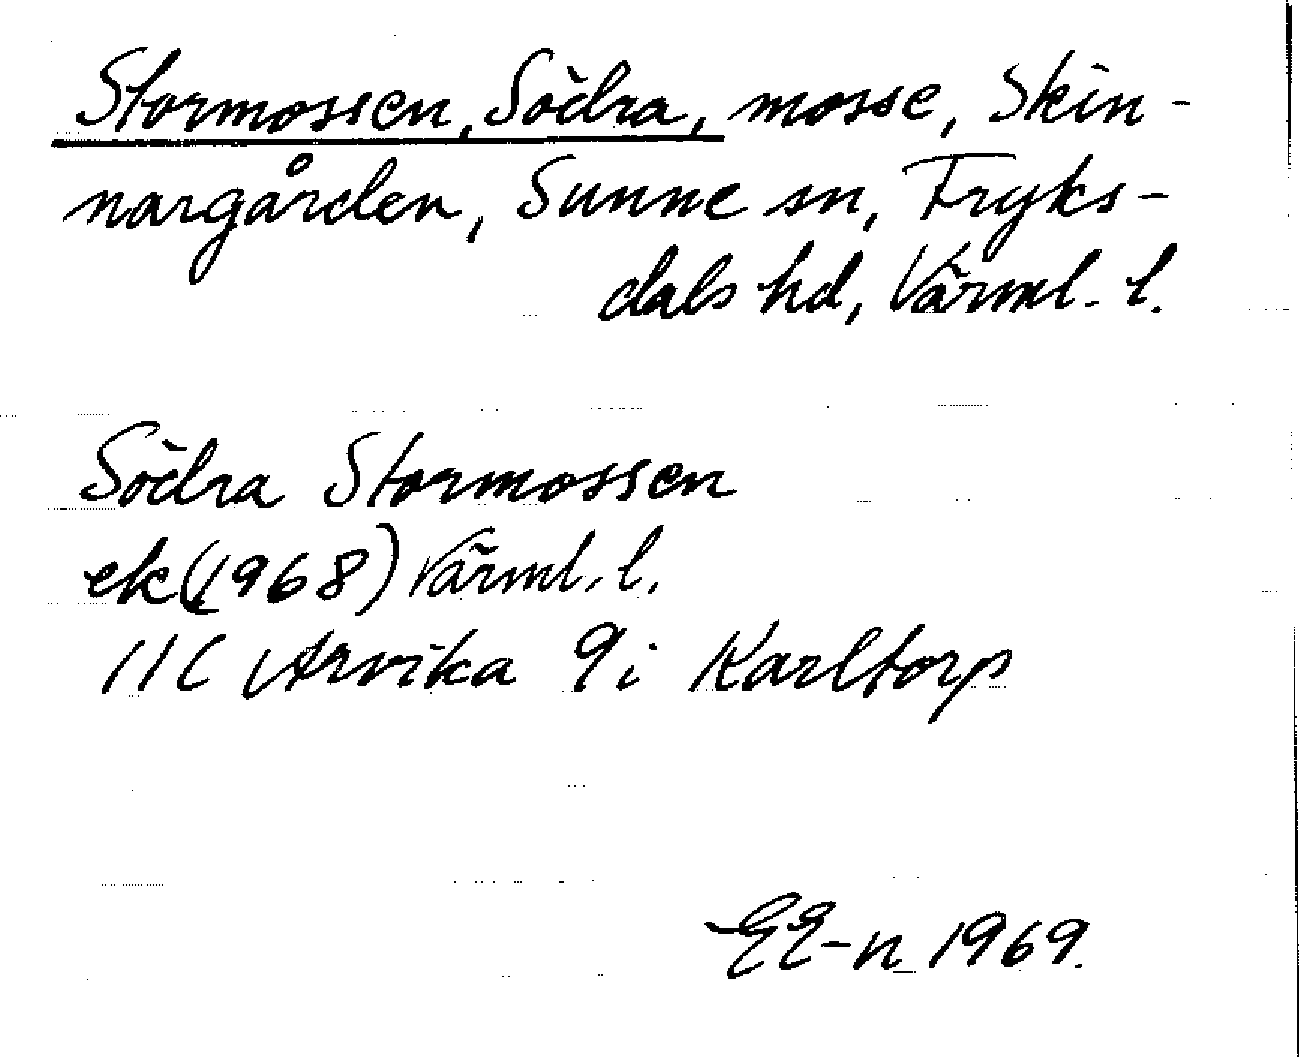 Stormossen, Södra, mosse, Skin-
nargården, Sunne sn, Fryks-
dals hd, Värml. l.
Södra Stormossen
ek (1968) Värml. l.
11C Arvika 9i Karltorp
EE-n 1969.